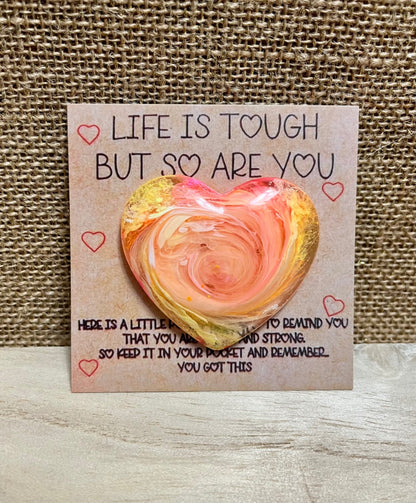 LIFE IS TOUGH
BUT SO ARE YOU
HERE IS A LITTLE TO REMIND YOU
THAT YOU ARE AND STRONG.
SO KEEP IT IN YOUR POCKET AND REMEMBER...
YOU GOT THIS